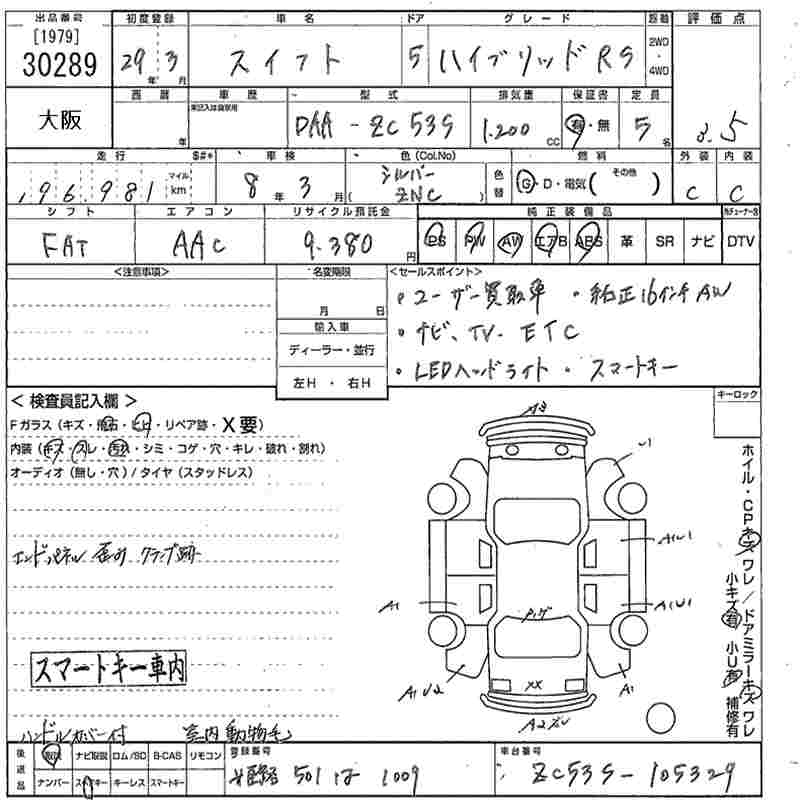 出品番号 初度登録 車名 ドア グレード 駆動 評価点
[1979]
30289
29年 3月 スイフト 5 ハイブリッドRS 2WD・4WD
大阪
西暦 車歴 型式 排気量 保証書 定員
年 DAA-ZC53S 1.200cc 有・無 5名 3.5
走行 S#* 車検 色(Col.No) 燃料 外装 内装
196,981 マイル km 8年 3月 シルバー (ZNC) 色替 G・D・電気 (その他) C C
シフト エアコン リサイクル預託金 純正装備品
FAT AAC 9.380円 PS PW AW エアB ABS 革 SR ナビ DTV
<注意事項> 名変期限 <セールスポイント>
月 日
・ユーザー買取車 ・純正16インチAW
輸入車
・ナビ、TV・ETC
ディーラー・並行
・LEDヘッドライト・スマートキー
左H ・ 右H
キーロック
<検査員記入欄>
Fガラス(キズ・飛石・ヒビ・リペア跡・X要)
内装(キズ・スレ・汚れ・シミ・コゲ・穴・キレ・破れ・割れ)
オーディオ(無し・穴)/タイヤ(スタッドレス)
エンドパネル 歪み クランプ跡
スマートキー車内
ハンドルカバー付 室内動物毛
U1
A1U1
A1
A1U1
A1U2
XX
A1
ホイル・CPキズワレ/ドアミラーキズワレ
小キズ有 小U有 補修有
後送品 取説 ナビ取説 ロム/SD B-CAS リモコン 登録番号 車台番号
ナンバー スペアキー キーレス スマートキー 姫路 501 は 1009 ZC53S-105329